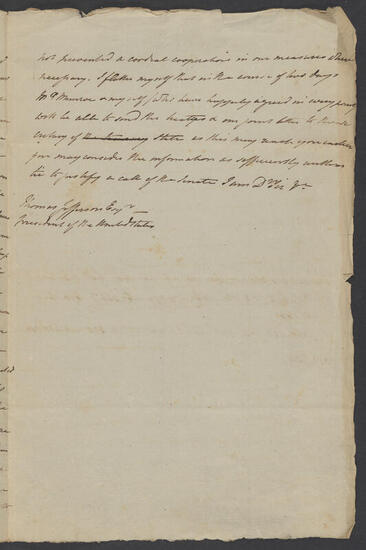 not prevented a cordial cooperation in our measures where
necessary. I flatter myself that in the course of two days
Mr Munroe & myself (who have happily agreed in every point
will be able to send the treaties & our joint letter to the Se-
cretary of the treasury State as this may reach you
you may consider the information as sufficiently authen
tic to justify a call of the Senate I am Dr Sir &c
Thomas Jefferson Esqr
President of the United States